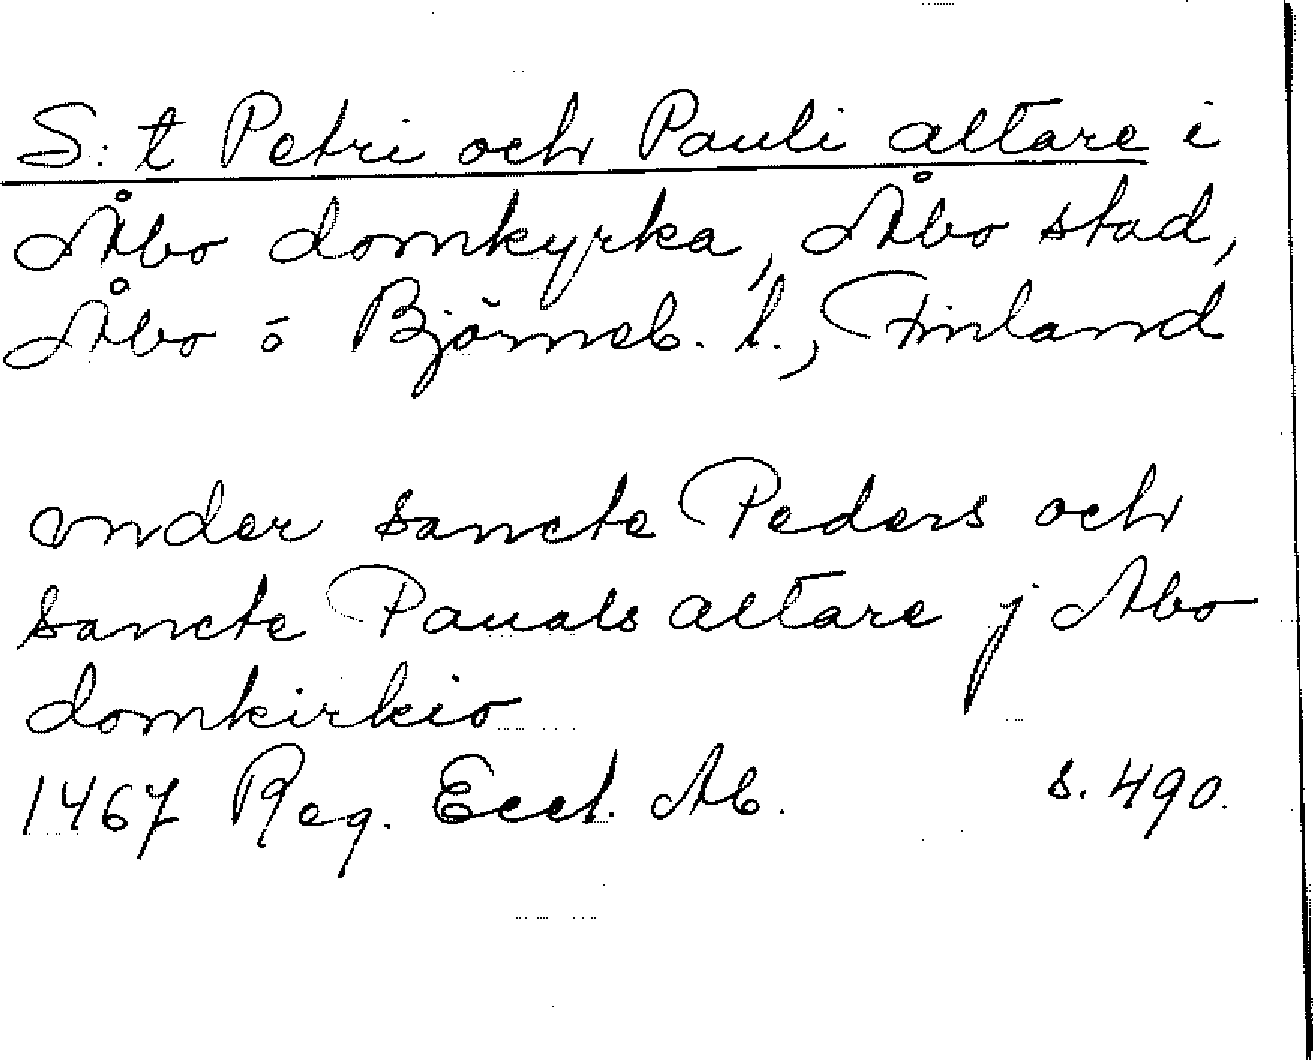 S:t Petri och Pauli altare i
Åbo domkyrka, Åbo stad,
Åbo o Björneb. l., Finland
onder sancte Peders och
sancte Pauals altare j Abo
domkirkio
1467 Reg. Eccl. Ab. s. 490.